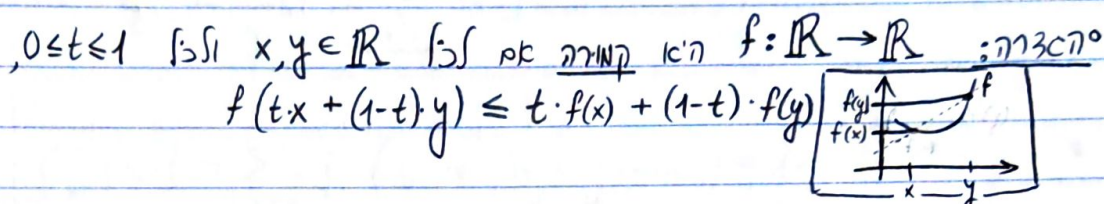 הגדרה: f: ℝ → ℝ היא קמורה אם לכל x, y ∈ ℝ ולכל 0 ≤ t ≤ 1,
f(t·x + (1-t)·y) ≤ t·f(x) + (1-t)·f(y)
f
f(y)
f(x)
x y